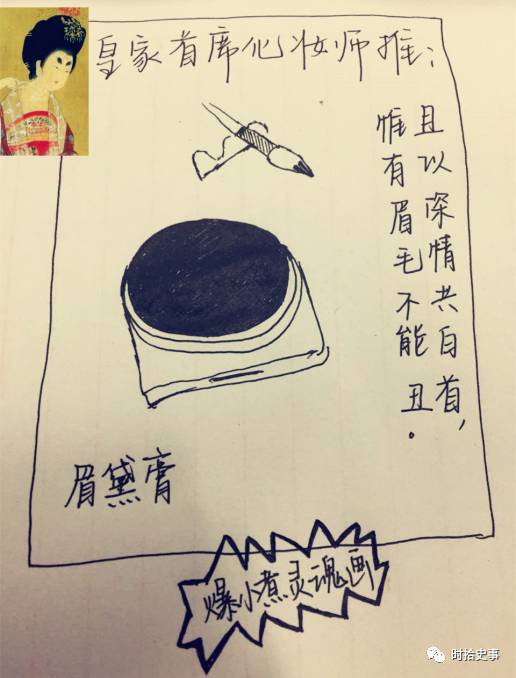 皇家首席化妆师推：
且以深情共白首，
惟有眉毛不能丑。
眉黛膏
爆小煮灵魂画
时拾史事